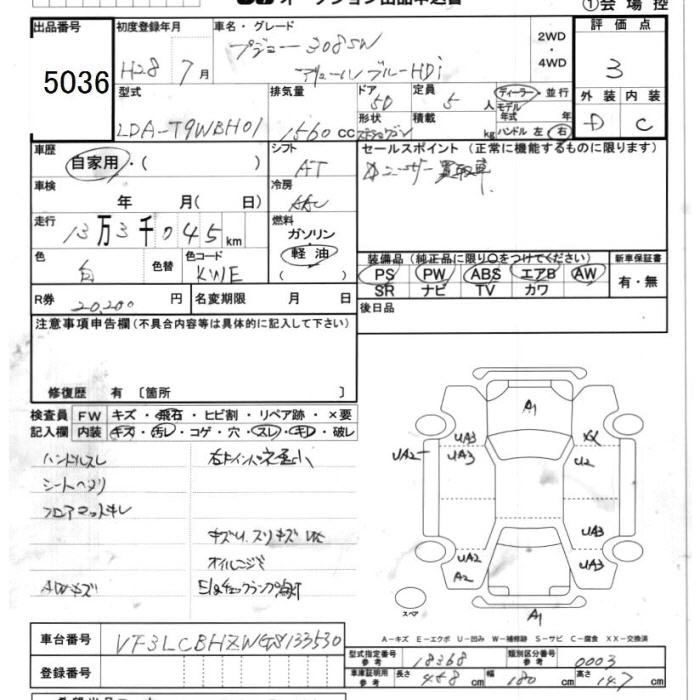 オークション出品申込書 ①会場控
出品番号 初度登録年月 車名・グレード 2WD ・ 4WD 評価点
5036 H28年 7月 プジョー 308SW アリュール ブルーHDi 3
型式 排気量 ドア 定員 ディーラー・並行 外装 内装
LDA-T9WBH01 1560 CC 5D 5人 モデル年式 年 D C
形状 積載 kg ハンドル 左 右
車歴 シフト セールスポイント (正常に機能するものに限ります)
自家用・( ) AT ユーザー買取車
車検 冷房
年 月( 日) AAC
走行 燃料
13万3千045km ガソリン
色 色替 色コード 軽油 装備品(純正品に限り○をつけてください) 新車保証書
白 KWE ( ) PS PW ABS エアB AW 有・無
SR ナビ TV カワ
R券 20,200円 名変期限 月 日 後日品
注意事項申告欄(不具合内容等は具体的に記入して下さい)
修復歴 有 〔箇所 〕
検査員 FW キズ・飛石・ヒビ割・リペア跡・×要
記入欄 内装 キズ・汚レ・コゲ・穴・スレ・キレ・破レ
ハンドルスレ
シートヘタリ
フロアマットキレ
キズU、スリキズ
オイルニジミ
AWキズ
A1
UA3 XX
UA2 UA3 U2
UA3
UA2 UA3
A2
スペア A1
A-キズ E-エクボ U-凹み W-補修跡 S-サビ C-腐食 XX-交換済
車台番号 VF3LCBHZWGS133530
登録番号
型式指定番号 参考 18368 類別区分番号 参考 0003
車庫証明用 参考 長さ 458cm 幅 180cm 高さ 147cm